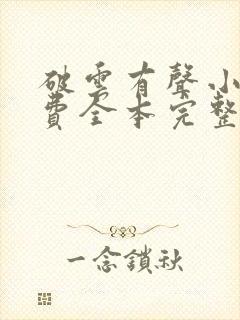 破雲有聲小
費全本完整
一念鎖秋